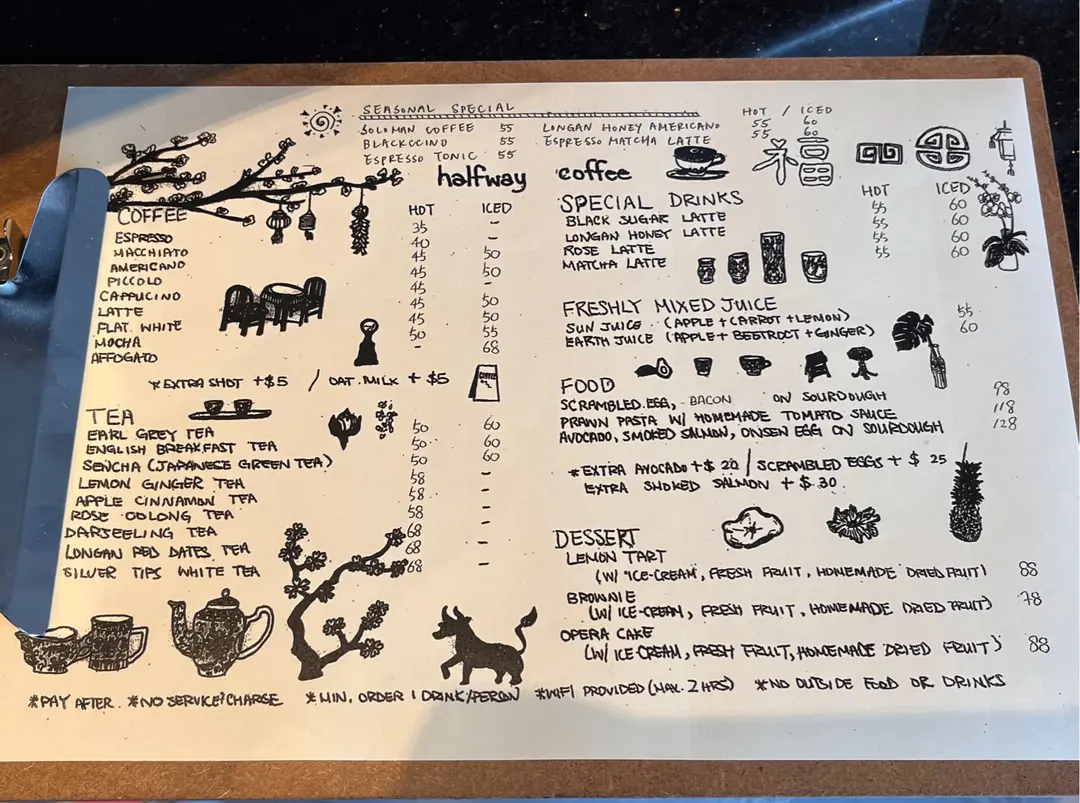 SEASONAL SPECIAL HOT / ICED
SOLOMAN COFFEE 55 LONGAN HONEY AMERICANO 55 60
BLACKOCINO 55 ESPRESSO MATCHA LATTE 55 60
ESPRESSO TONIC 55
halfway coffee
福
COFFEE HOT ICED
ESPRESSO 35 -
MACCHIATO 40 -
AMERICANO 45 50
PICCOLO 45 50
CAPPUCINO 45 -
LATTE 45 50
FLAT WHITE 45 50
MOCHA 50 55
AFFOGATO - 68
*EXTRA SHOT +$5 / OAT MILK +$5
COFFEE
TEA
EARL GREY TEA 50 60
ENGLISH BREAKFAST TEA 50 60
SENCHA (JAPANESE GREEN TEA) 50 60
LEMON GINGER TEA 58 -
APPLE CINNAMON TEA 58 -
ROSE OOLONG TEA 58 -
DARJEELING TEA 68 -
LONGAN RED DATES TEA 68 -
SILVER TIPS WHITE TEA 68 -
SPECIAL DRINKS HOT ICED
BLACK SUGAR LATTE 55 60
LONGAN HONEY LATTE 55 60
ROSE LATTE 55 60
MATCHA LATTE 55 60
FRESHLY MIXED JUICE
SUN JUICE (APPLE+CARROT+LEMON) 55
EARTH JUICE (APPLE+BEETROOT+GINGER) 60
FOOD
SCRAMBLED EGG, BACON ON SOURDOUGH 98
PRAWN PASTA W/ HOMEMADE TOMATO SAUCE 118
AVOCADO, SMOKED SALMON, ONSEN EGG ON SOURDOUGH 128
*EXTRA AVOCADO +$20 / SCRAMBLED EGGS +$25
EXTRA SMOKED SALMON +$30
DESSERT
LEMON TART
(W/ ICE-CREAM, FRESH FRUIT, HOMEMADE DRIED FRUIT) 88
BROWNIE
(W/ ICE-CREAM, FRESH FRUIT, HOMEMADE DRIED FRUIT) 78
OPERA CAKE
(W/ ICE CREAM, FRESH FRUIT, HOMEMADE DRIED FRUIT) 88
*PAY AFTER. *NO SERVICE CHARGE *MIN. ORDER 1 DRINK/PERSON *WIFI PROVIDED (MAX. 2 HRS) *NO OUTSIDE FOOD OR DRINKS